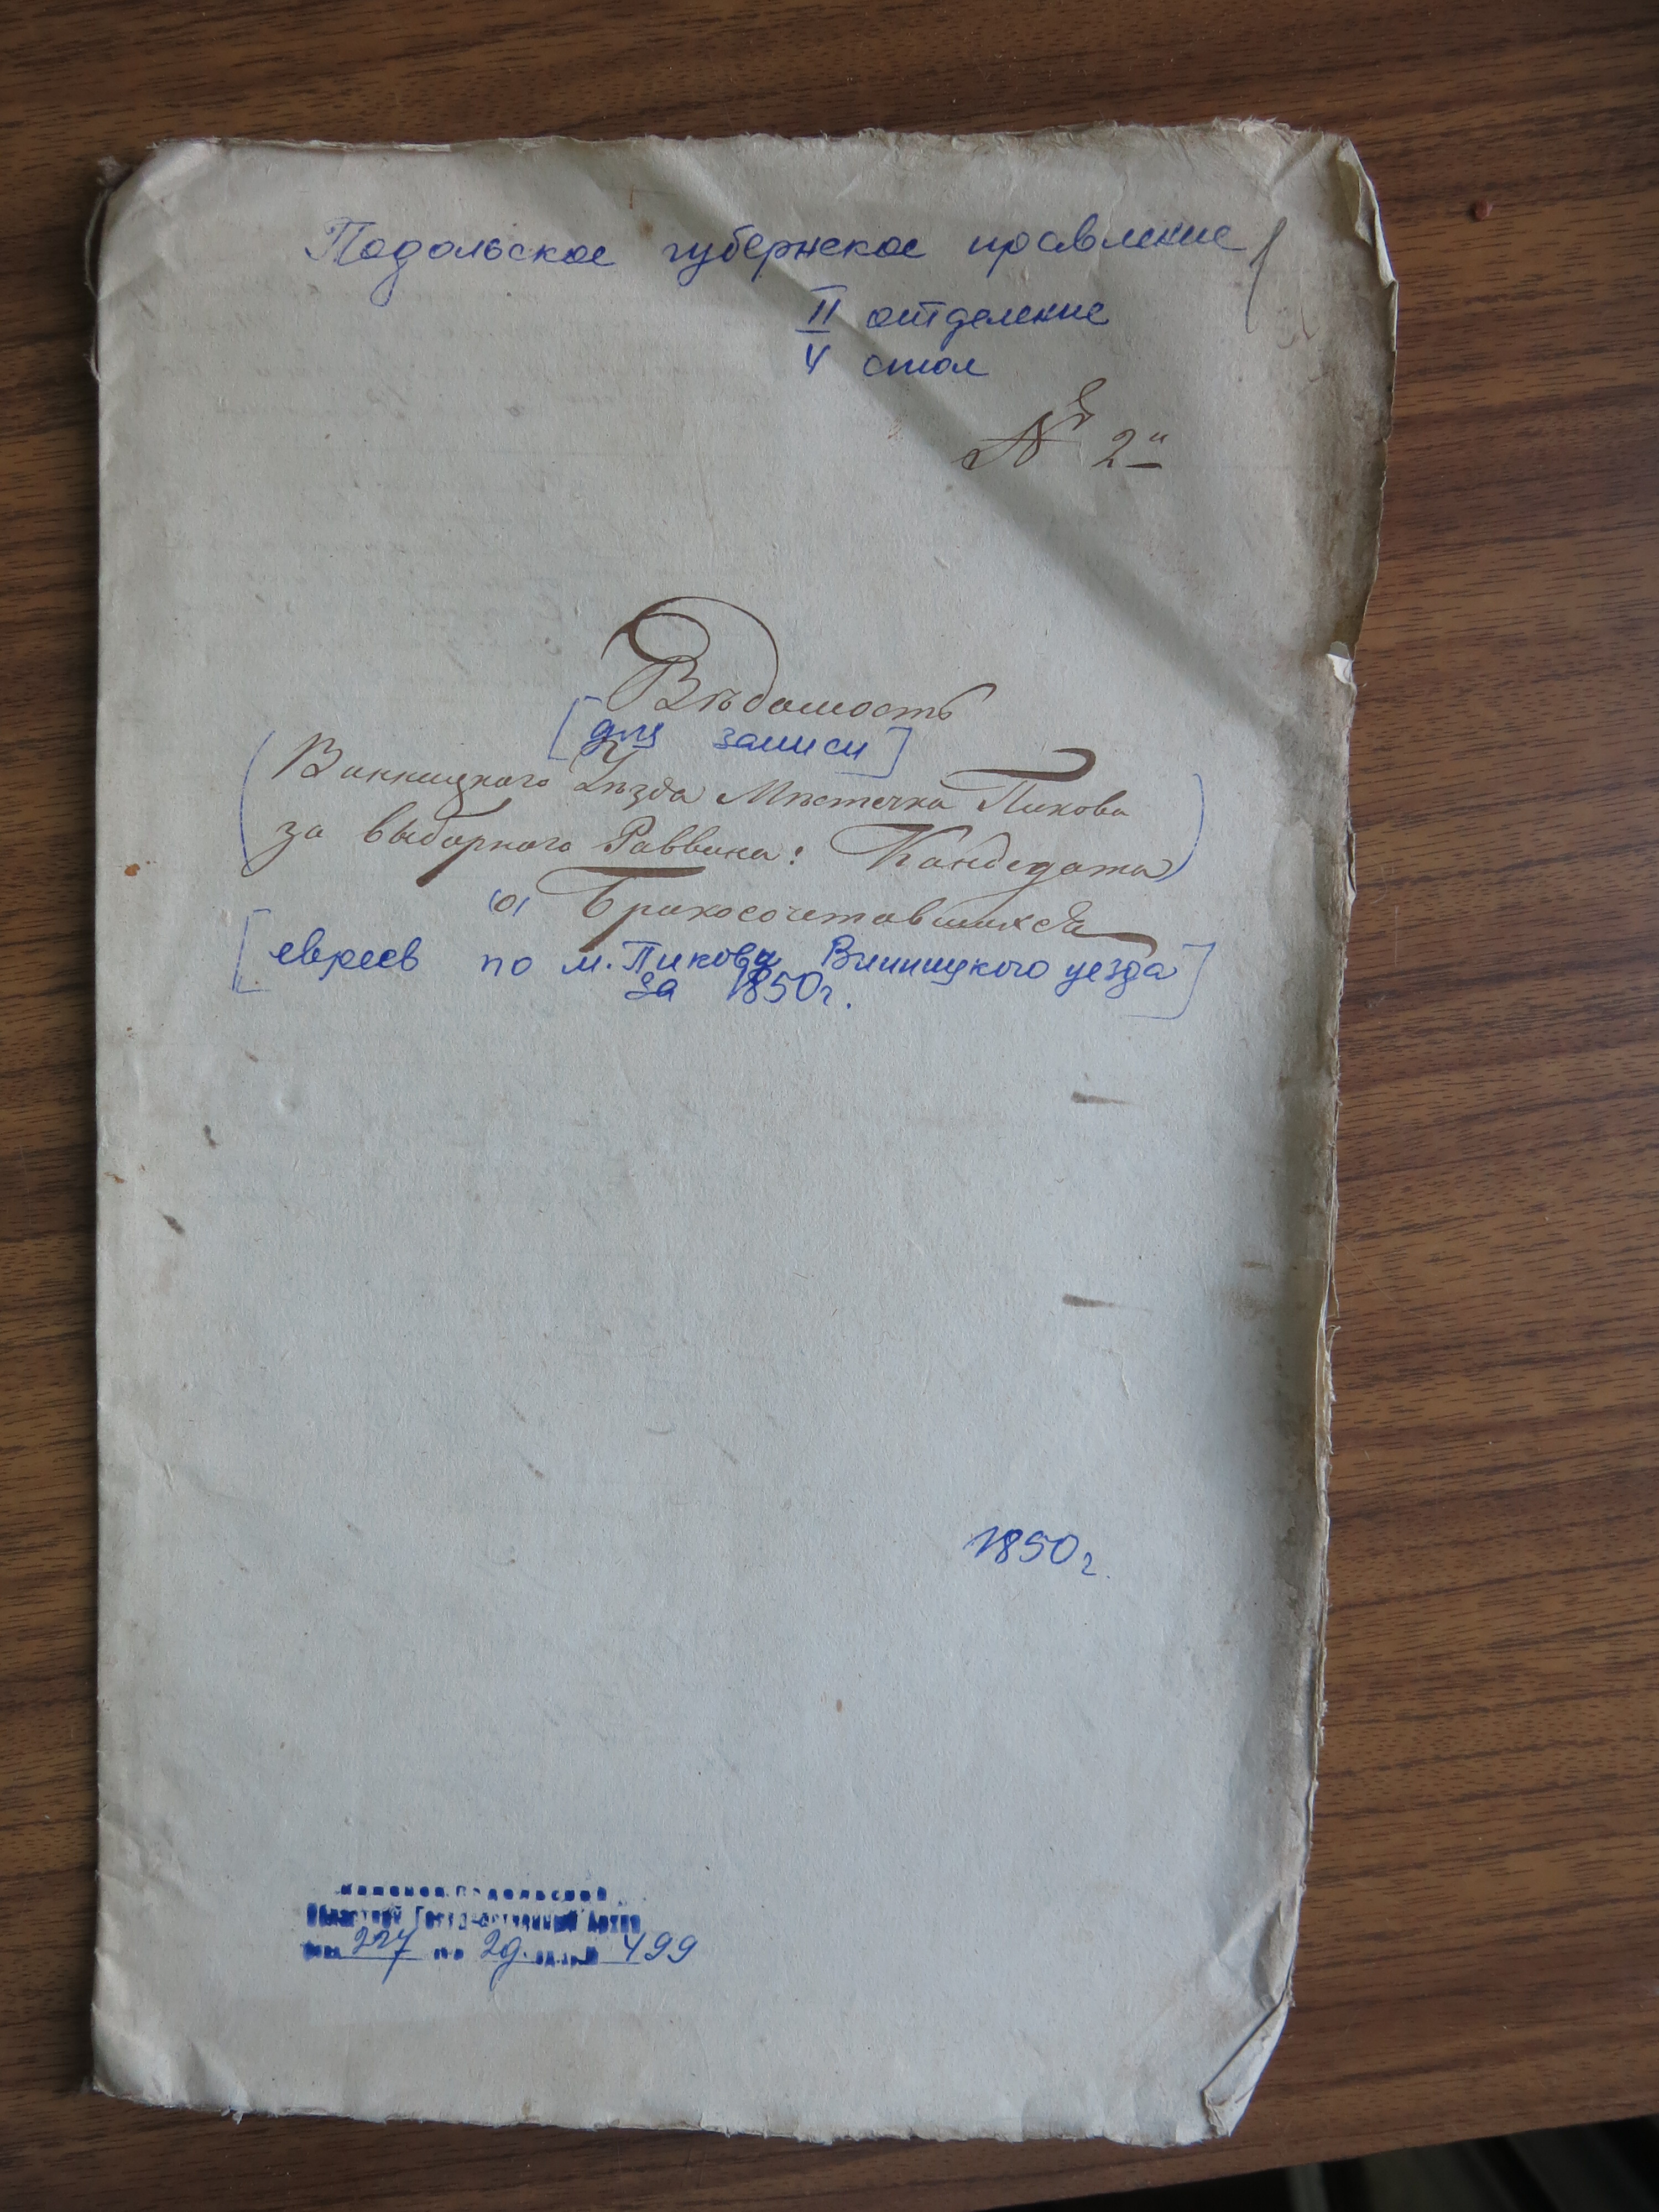 Подольское губернское правление
II отделение
V стол
№ 2й
Вѣдомость
[для записи]
(Винницкого Уѣзда Мѣстечка Пикова
за выборного Раввина: Кандидата)
(о) Бракосочетавшихся
[евреев по м. Пикову Винницкого уезда
за 1850г.]
1850г.
Каменец-Подольской
Областной Государственный Архив
Фонд 227 оп 2д. ед.хр.№ 499